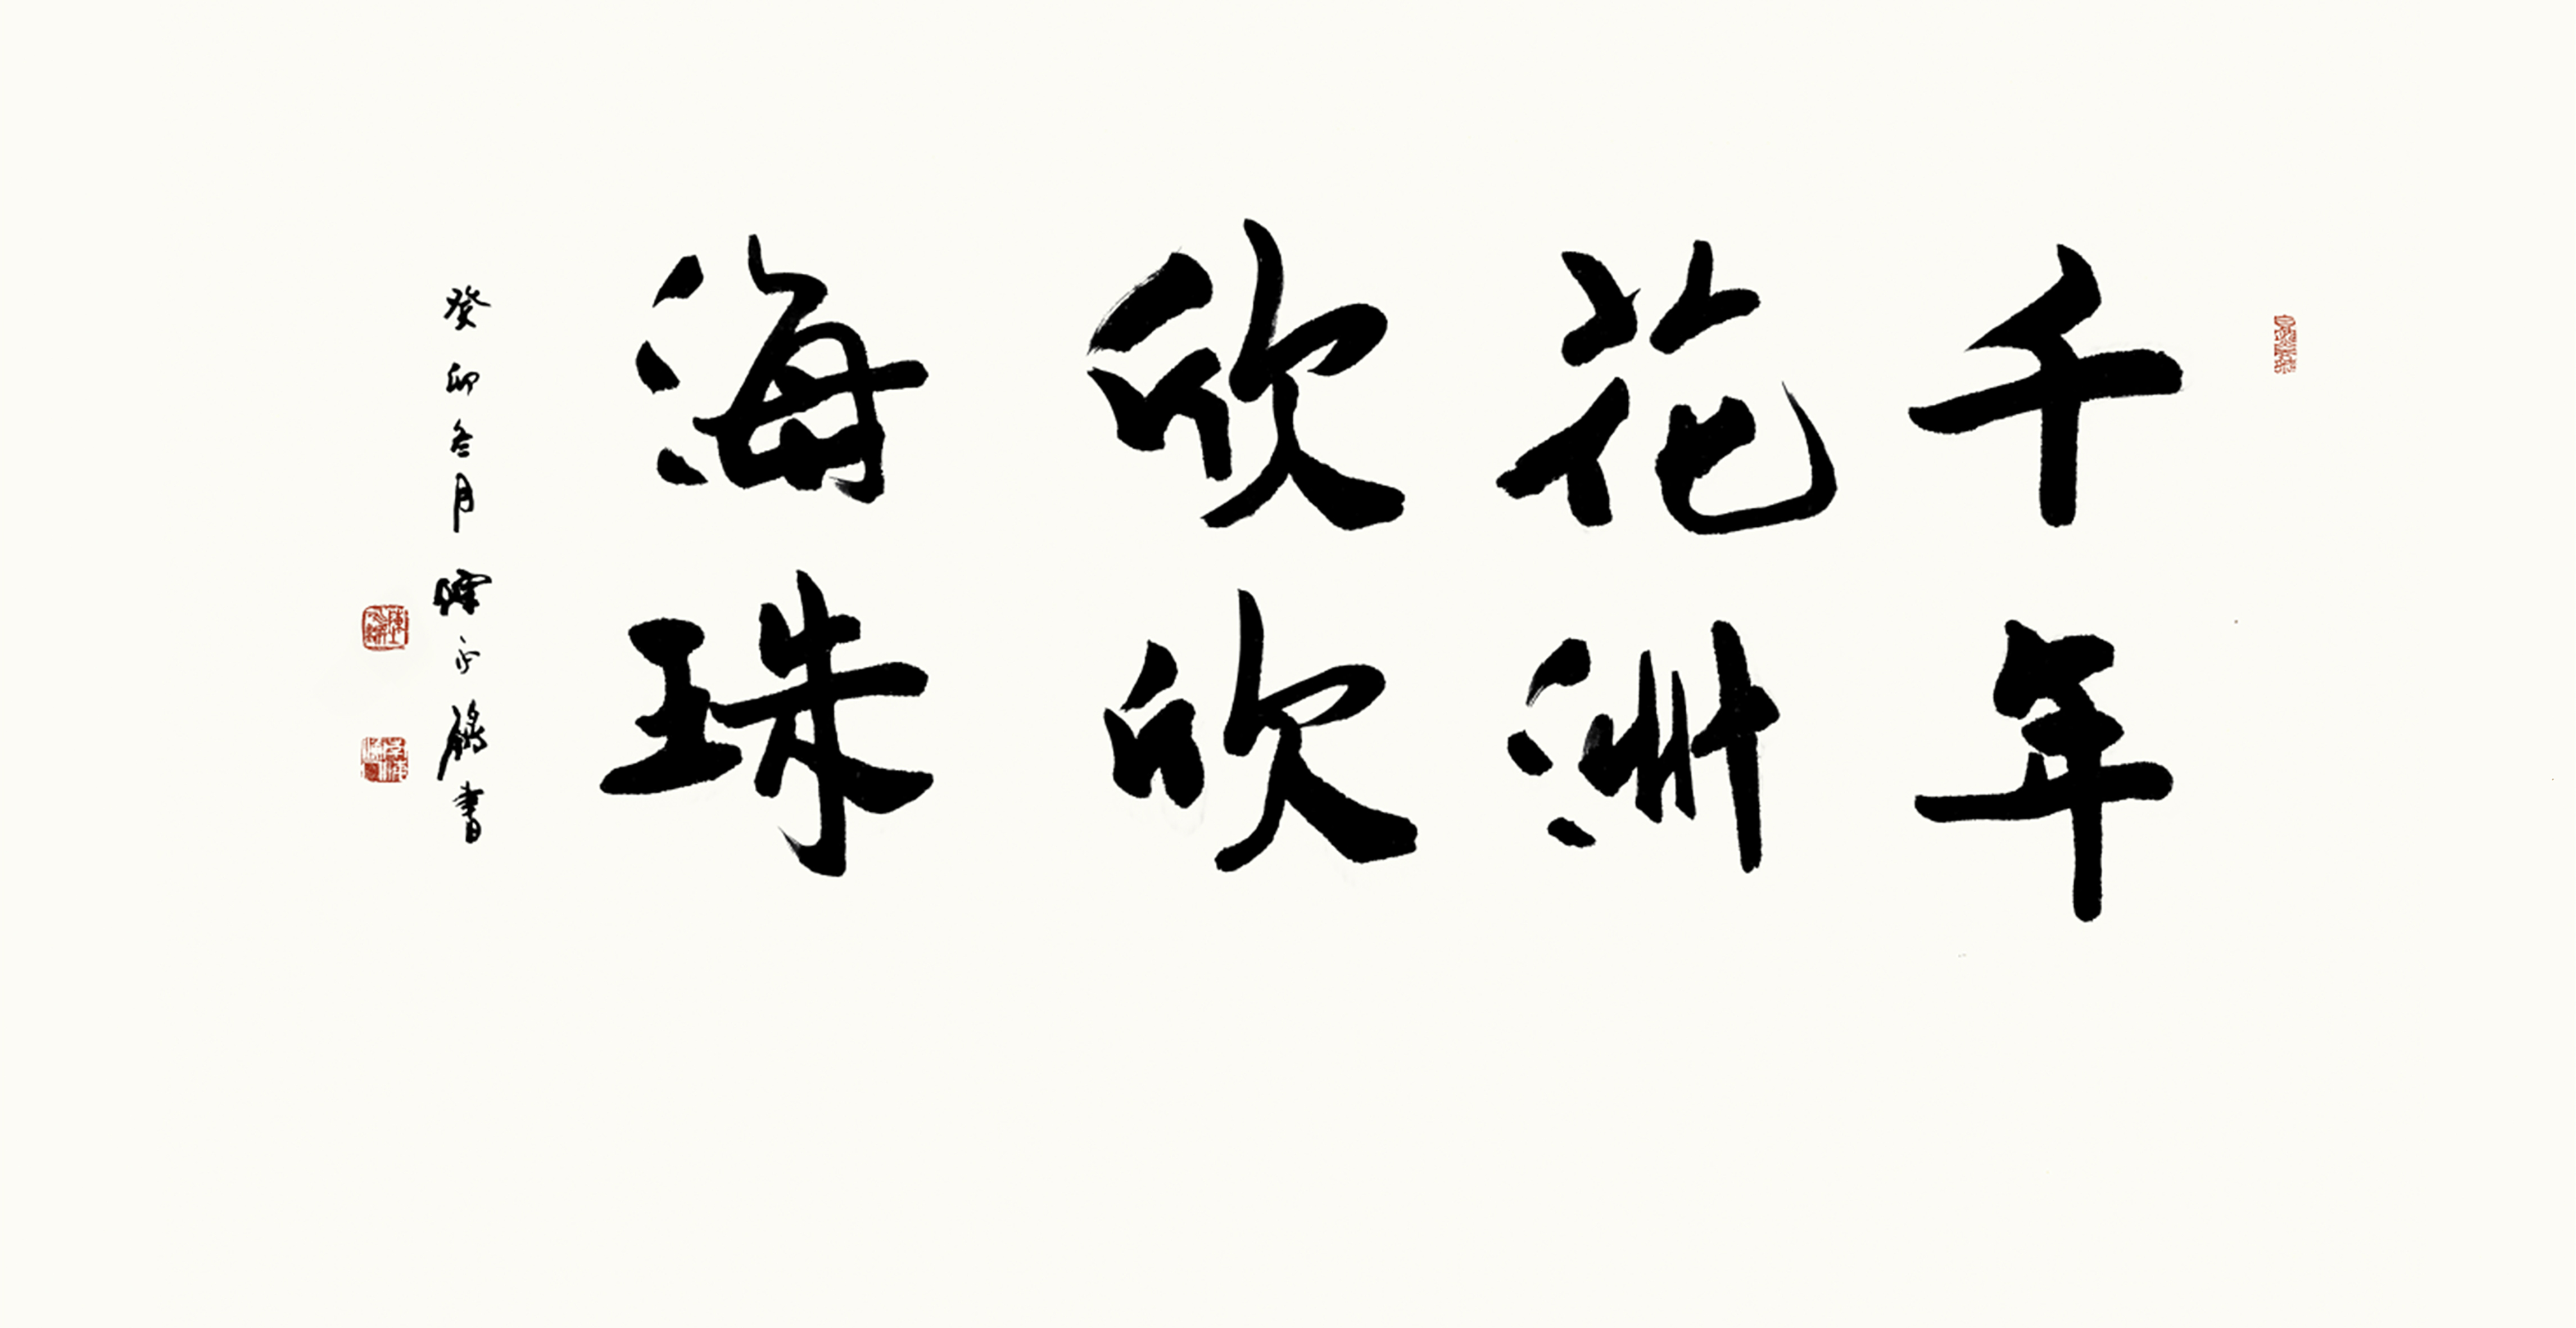 千年
花洲
欣欣
海珠
癸卯冬月 陳永鏘書